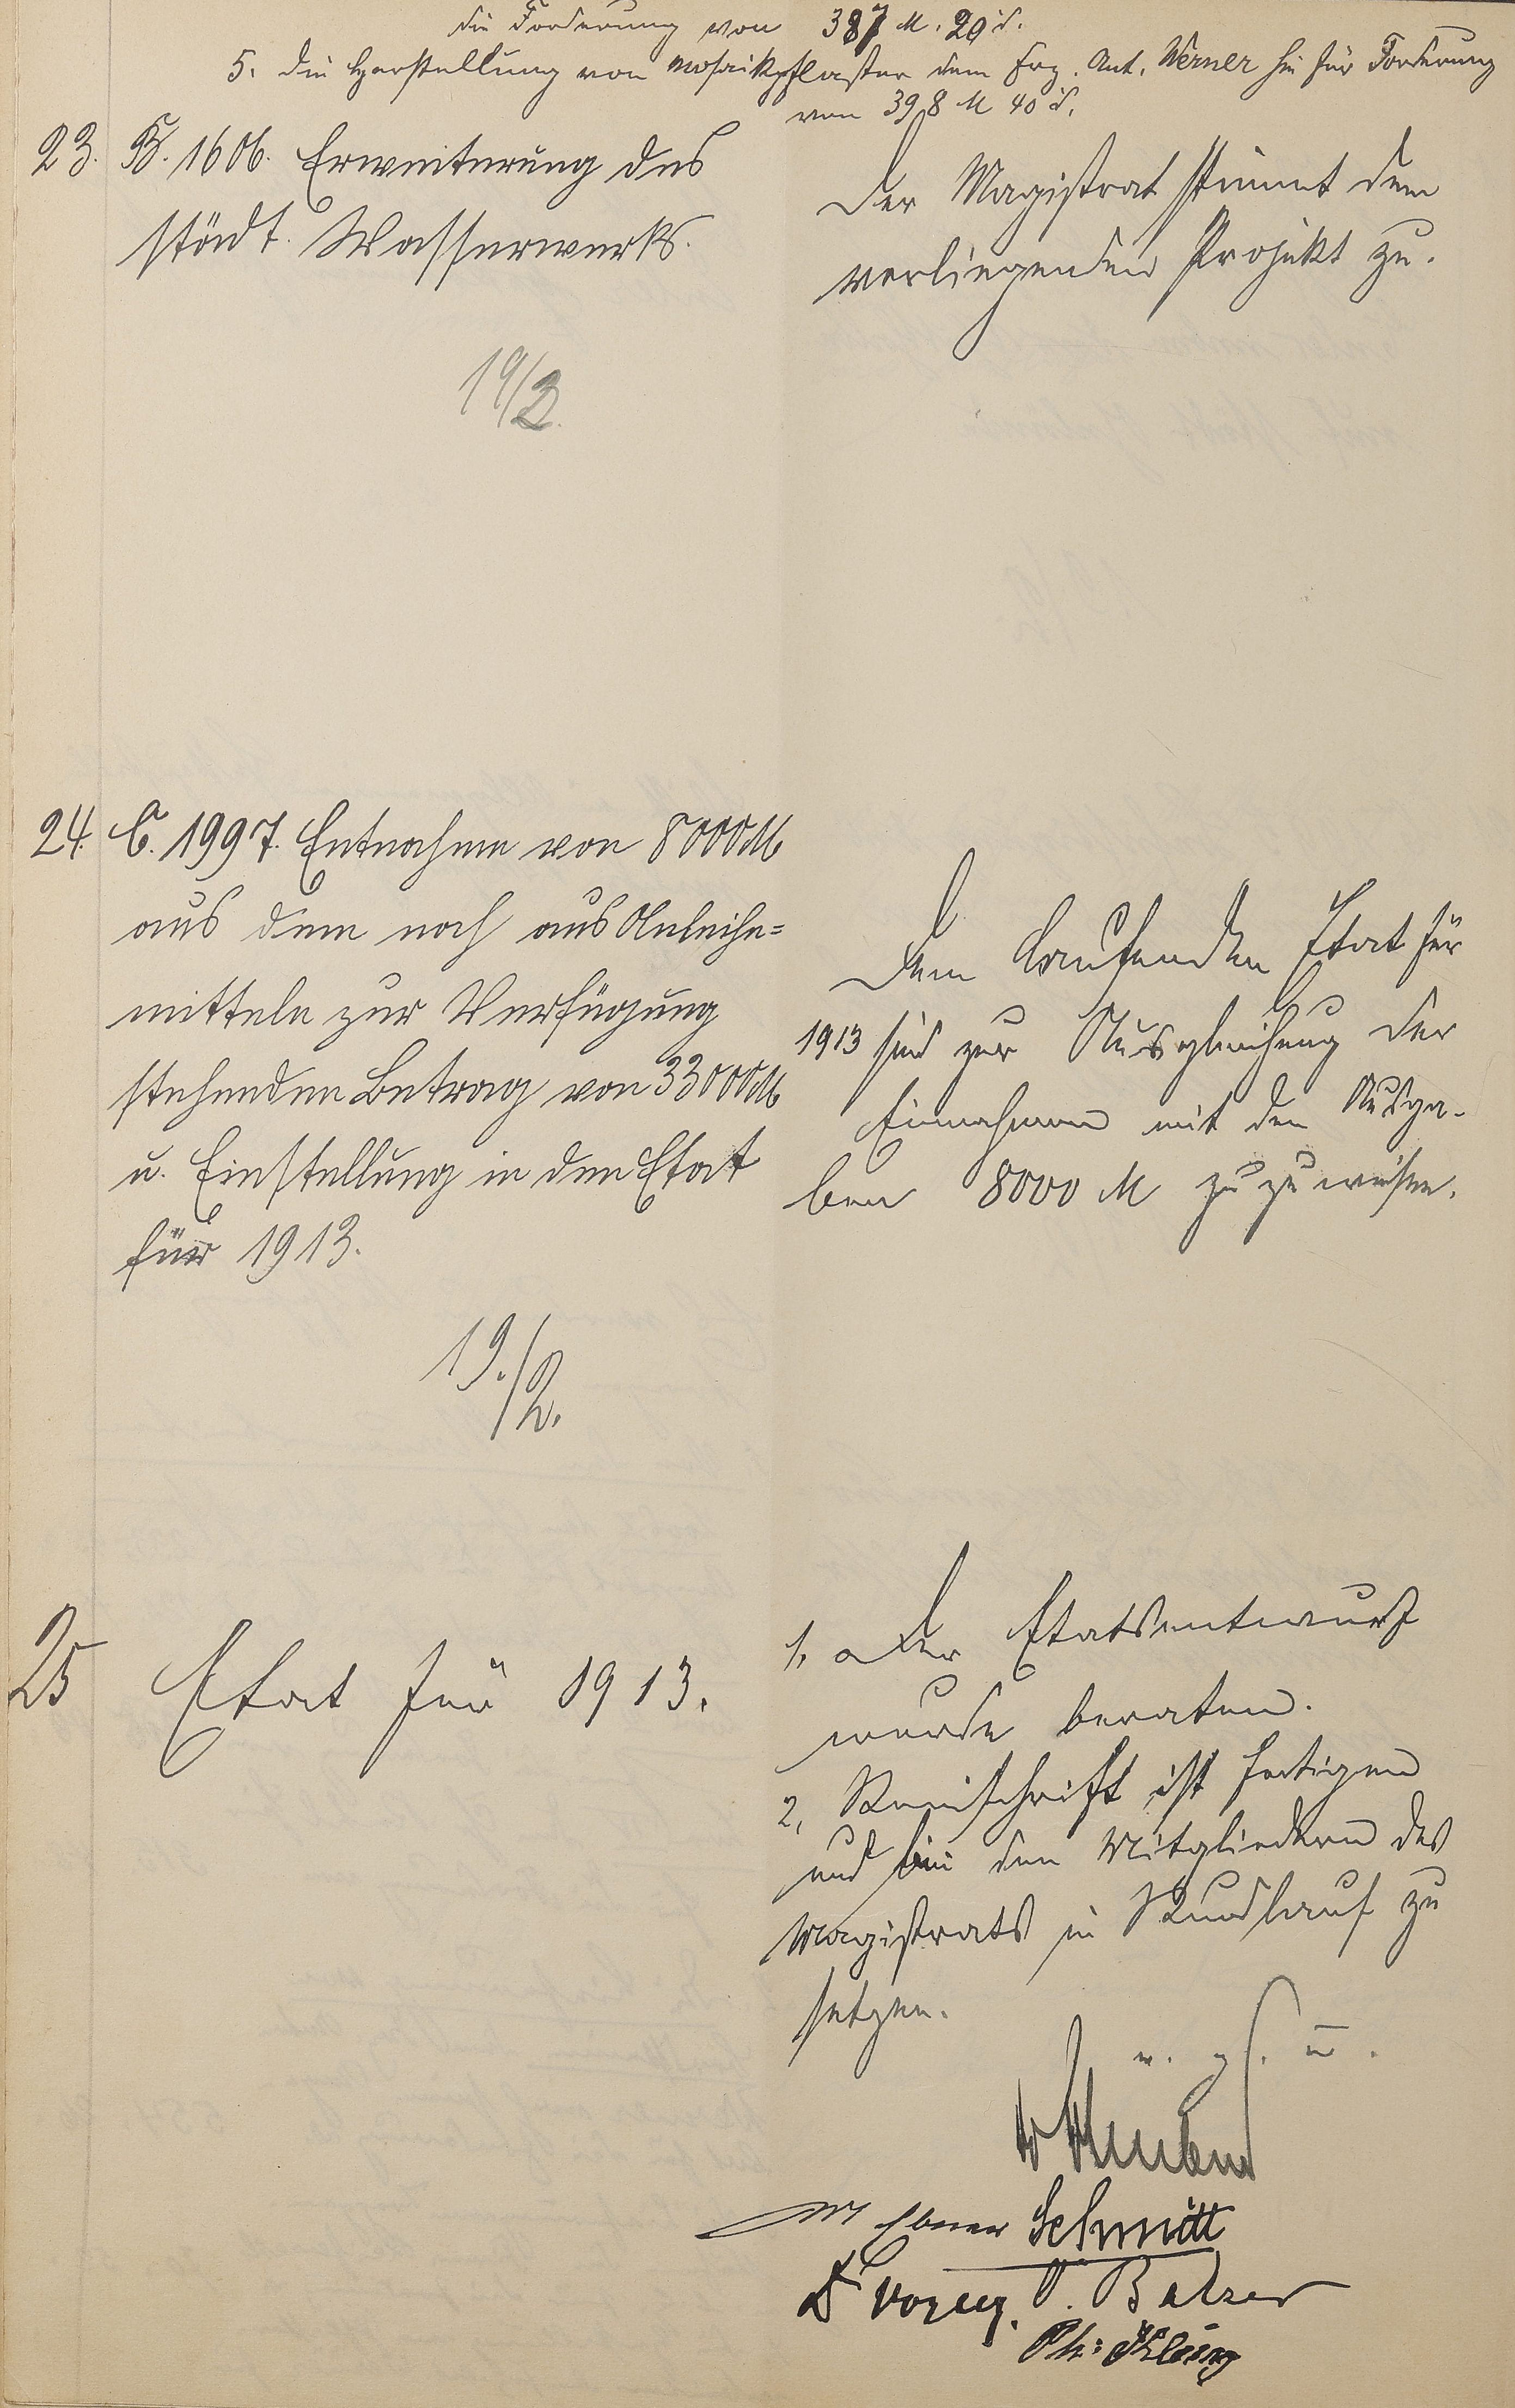 die Forderung von 387 M. 20 d.
5. die Herstellung von Mosaikpflaster dem Frz. Ant. Werner hier für Forderung
von 398 M 40 d.
23. B. 1606. Erweiterung des
städt. Wasserwerks.
Der Magistrat stimmt dem
vorliegenden Projekt zu.
19/2.
24. C. 1997. Entnahme von 8000 M
aus dem noch aus Anleihe=
mitteln zur Verfügung
stehenden Betrag von 33000 M
u. Einstellung in den Etat
für 1913.
Dem laufenden Etat für
1913 sind zur Ausgleichung der
Einnahmen mit den Ausga-
ben 8000 M zuzuweisen.
19./2.
25 Etat für 1913.
1. Der Etatsentwurf
wurde beraten.
2. Reinschrift ist fertigen
und bei den Mitgliedern des
Magistrats in Rundlauf zu
setzen.
w. g. u.
Ebner Schmitt
Balzer
Ph: Kling